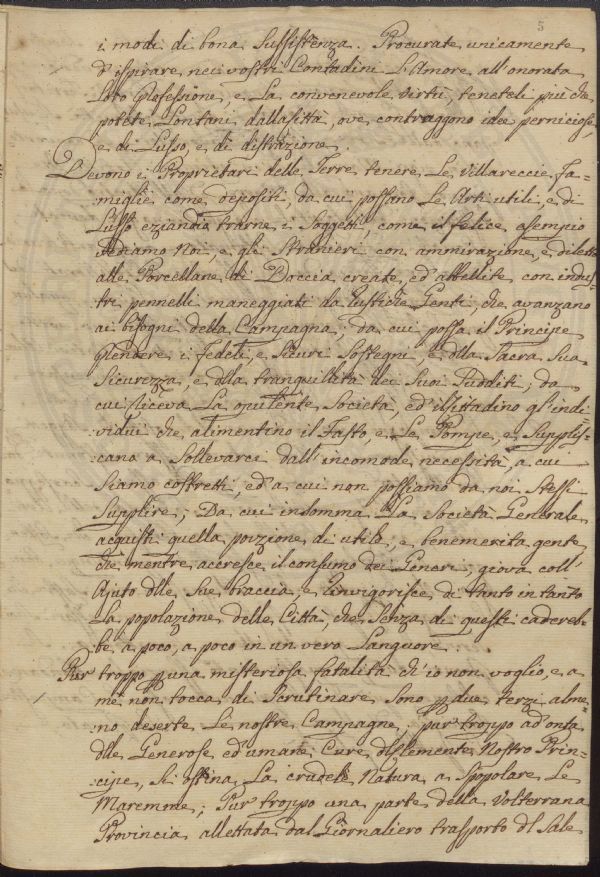 5
i modi di bona Sussistenza. Procurate unicamente
d'ispirare nei vostri Contadini L'Amore all'onorata
Loro Professione, e La convenevole virtù, teneteli più che
potete Lontani dalla Città, ove contraggono idee perniciose,
e di Lusso, e di distrazione.
Devono i Proprietari delle Terre tenere Le villareccie Fa-
miglie come depositi, da cui possano Le Arti utili, e di
Lusso eziandio trarne i Soggetti, come il felice esempio
vediamo Noi, e gli Stranieri con ammirazione, e diletto
alle Porcellane di Doccia create, ed abbellite con indus-
tri pennelli maneggiati da rustiche Genti, che avanzano
ai bisogni della Campagna; da cui possa il Principe
prendere i fedeli, e Sicuri Sostegni, e dlla Sacra Sua
Sicurezza, e dlla tranquillità dei Suoi Sudditi; da
cui riceva La opulente Società, ed il Cittadino gl'indi
vidui che alimentino il Fasto, e Le Pompe, e Supplis-
:cano a Sollevarci dall'incomode necessità, a cui
Siamo costretti, ed a cui non possiamo da noi Stessi
Supplire; Da cui insomma La Società Generale
acquisti quella porzione di utile, e benemerita gente,
che mentre accresce il consumo dei Generi, giova coll'
Ajuto dlle Sue braccia e rinvigorisce di tanto in tanto
La popolazione delle Città, che Senza di questi cadereb-
be a poco, a poco in un vero Languore.
Pur troppo p una misteriosa fatalità ch'io non voglio, e a
me non tocca di Scrutinare Sono p due terzi alme-
no deserte Le nostre Campagne; pur troppo ad onta
dlle Generose ed umane Cure dl Clemente Nostro Prin-
:cipe, Si ostina La crudele Natura a Spopolare Le
Maremme; Pur troppo una parte della Volterrana
Provincia allettata dal Giornaliero trasporto dl Sale